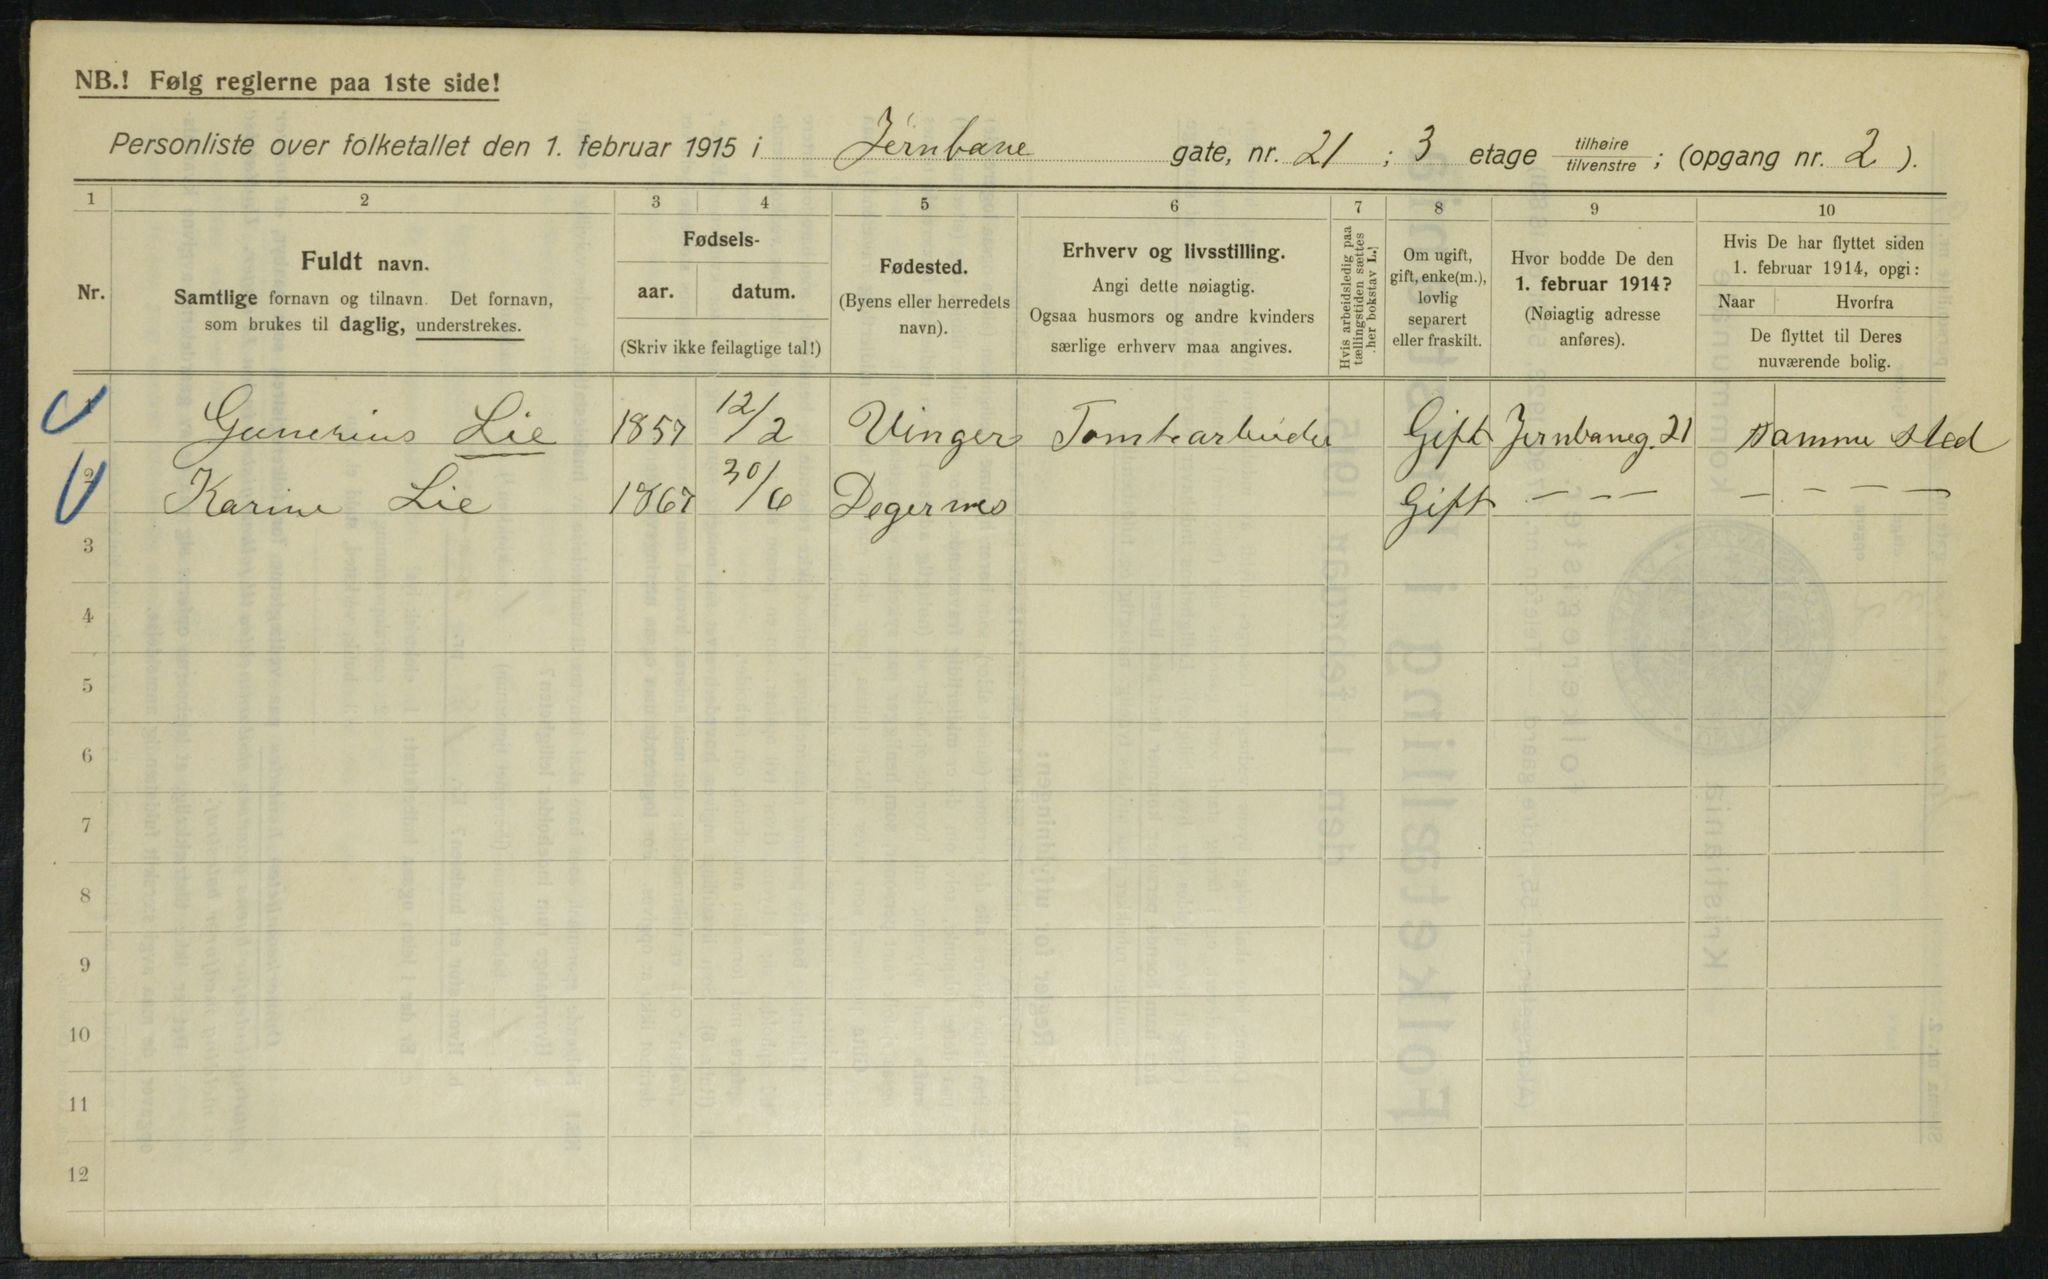 NB.! Følg reglerne paa 1ste side!
Personliste over folketallet den 1. februar 1915 i Jernbane gate, nr. 21; 3 etage tilhøire/tilvenstre; (opgang nr. 2).
1 2 3 4 5 6 7 8 9 10
Nr.
Fuldt navn.
Samtlige fornavn og tilnavn. Det fornavn,
som brukes til daglig, understrekes.
Fødsels-
aar. datum.
(Skriv ikke feilagtige tal!)
Fødested.
(Byens eller herredets
navn).
Erhverv og livsstilling.
Angi dette nøiagtig.
Ogsaa husmors og andre kvinders
særlige erhverv maa angives.
Hvis arbeidsledig paa
tællingstiden sættes
her bokstav L.
Om ugift,
gift, enke(m.),
lovlig
separert
eller fraskilt.
Hvor bodde De den
1. februar 1914?
(Nøiagtig adresse
anføres).
Hvis De har flyttet siden
1. februar 1914, opgi:
Naar Hvorfra
De flyttet til Deres
nuværende bolig.
1 Gunerius Lie 1857 12/2 Vinger Tomtearbeider Gift Jernbaneg. 21 samme sted
2 Karine Lie 1867 30/6 Degernes Gift — — — — — — —
3
4
5
6
7
8
9
10
11
12